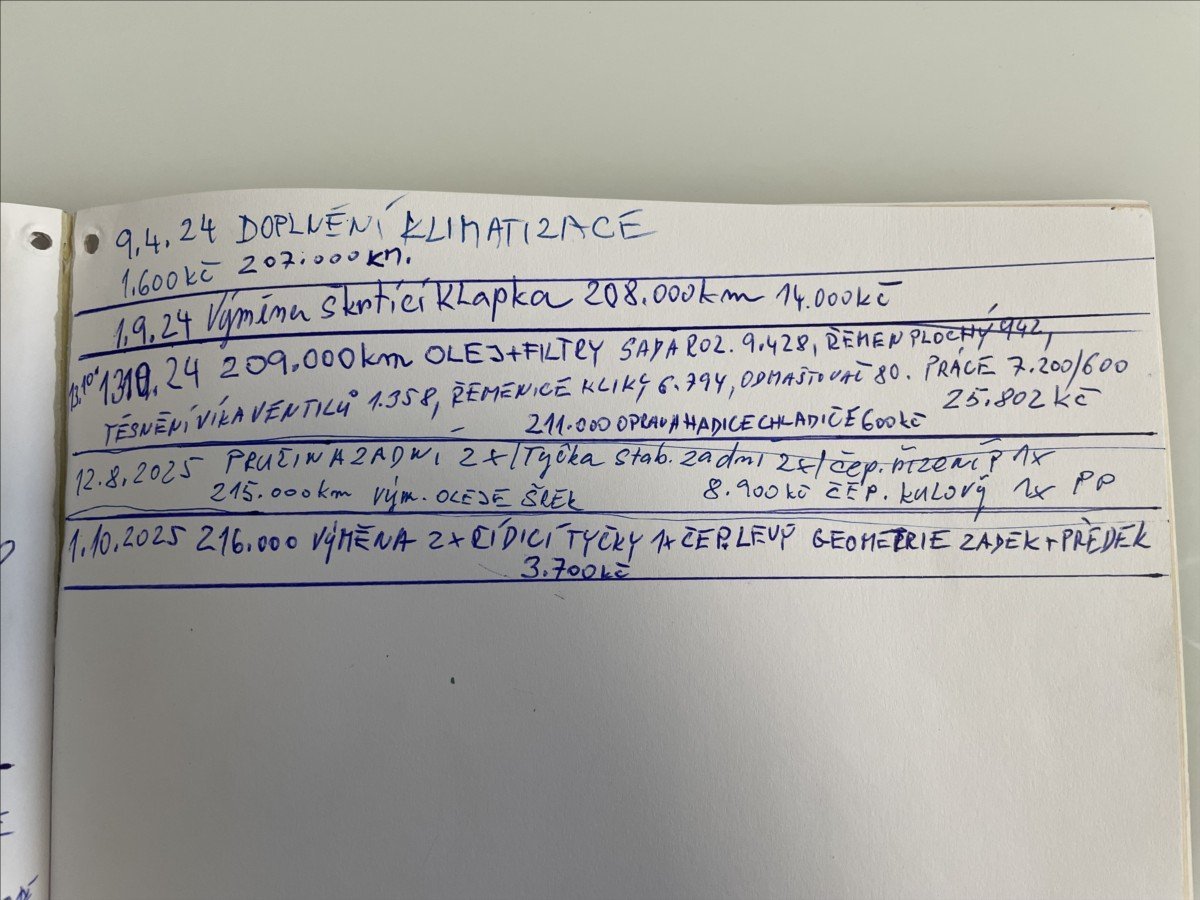 9.4.24 DOPLNĚNÍ KLIMATIZACE
1.600kč 207.000km.
1.9.24 Výměna škrtící klapka 208.000km 14.000kč
13.10. 1310.24 209.000km OLEJ+FILTRY SADA ROZ. 9.428, ŘEMEN PLOCHÝ 942,
TĚSNĚNÍ VÍKA VENTILŮ 1.358, ŘEMENICE KLIKY 6.794, ODMAŠŤOVAČ 80. PRÁCE 7.200/600
25.802 kč
211.000 OPRAVA HADICE CHLADIČE 600kč
12.8.2025 PRUŽINA ZADNÍ 2x/Tyčka stab. zadní 2x/čep. řízení P 1x
215.000km vým. OLEJE 8.900kč ČEP. KULOVÝ 1x PP
1.10.2025 216.000 VÝMĚNA 2x ŘÍDICÍ TYČKY 1x ČEP.LEVÝ GEOMETRIE ZADEK+PŘEDEK
3.700kč